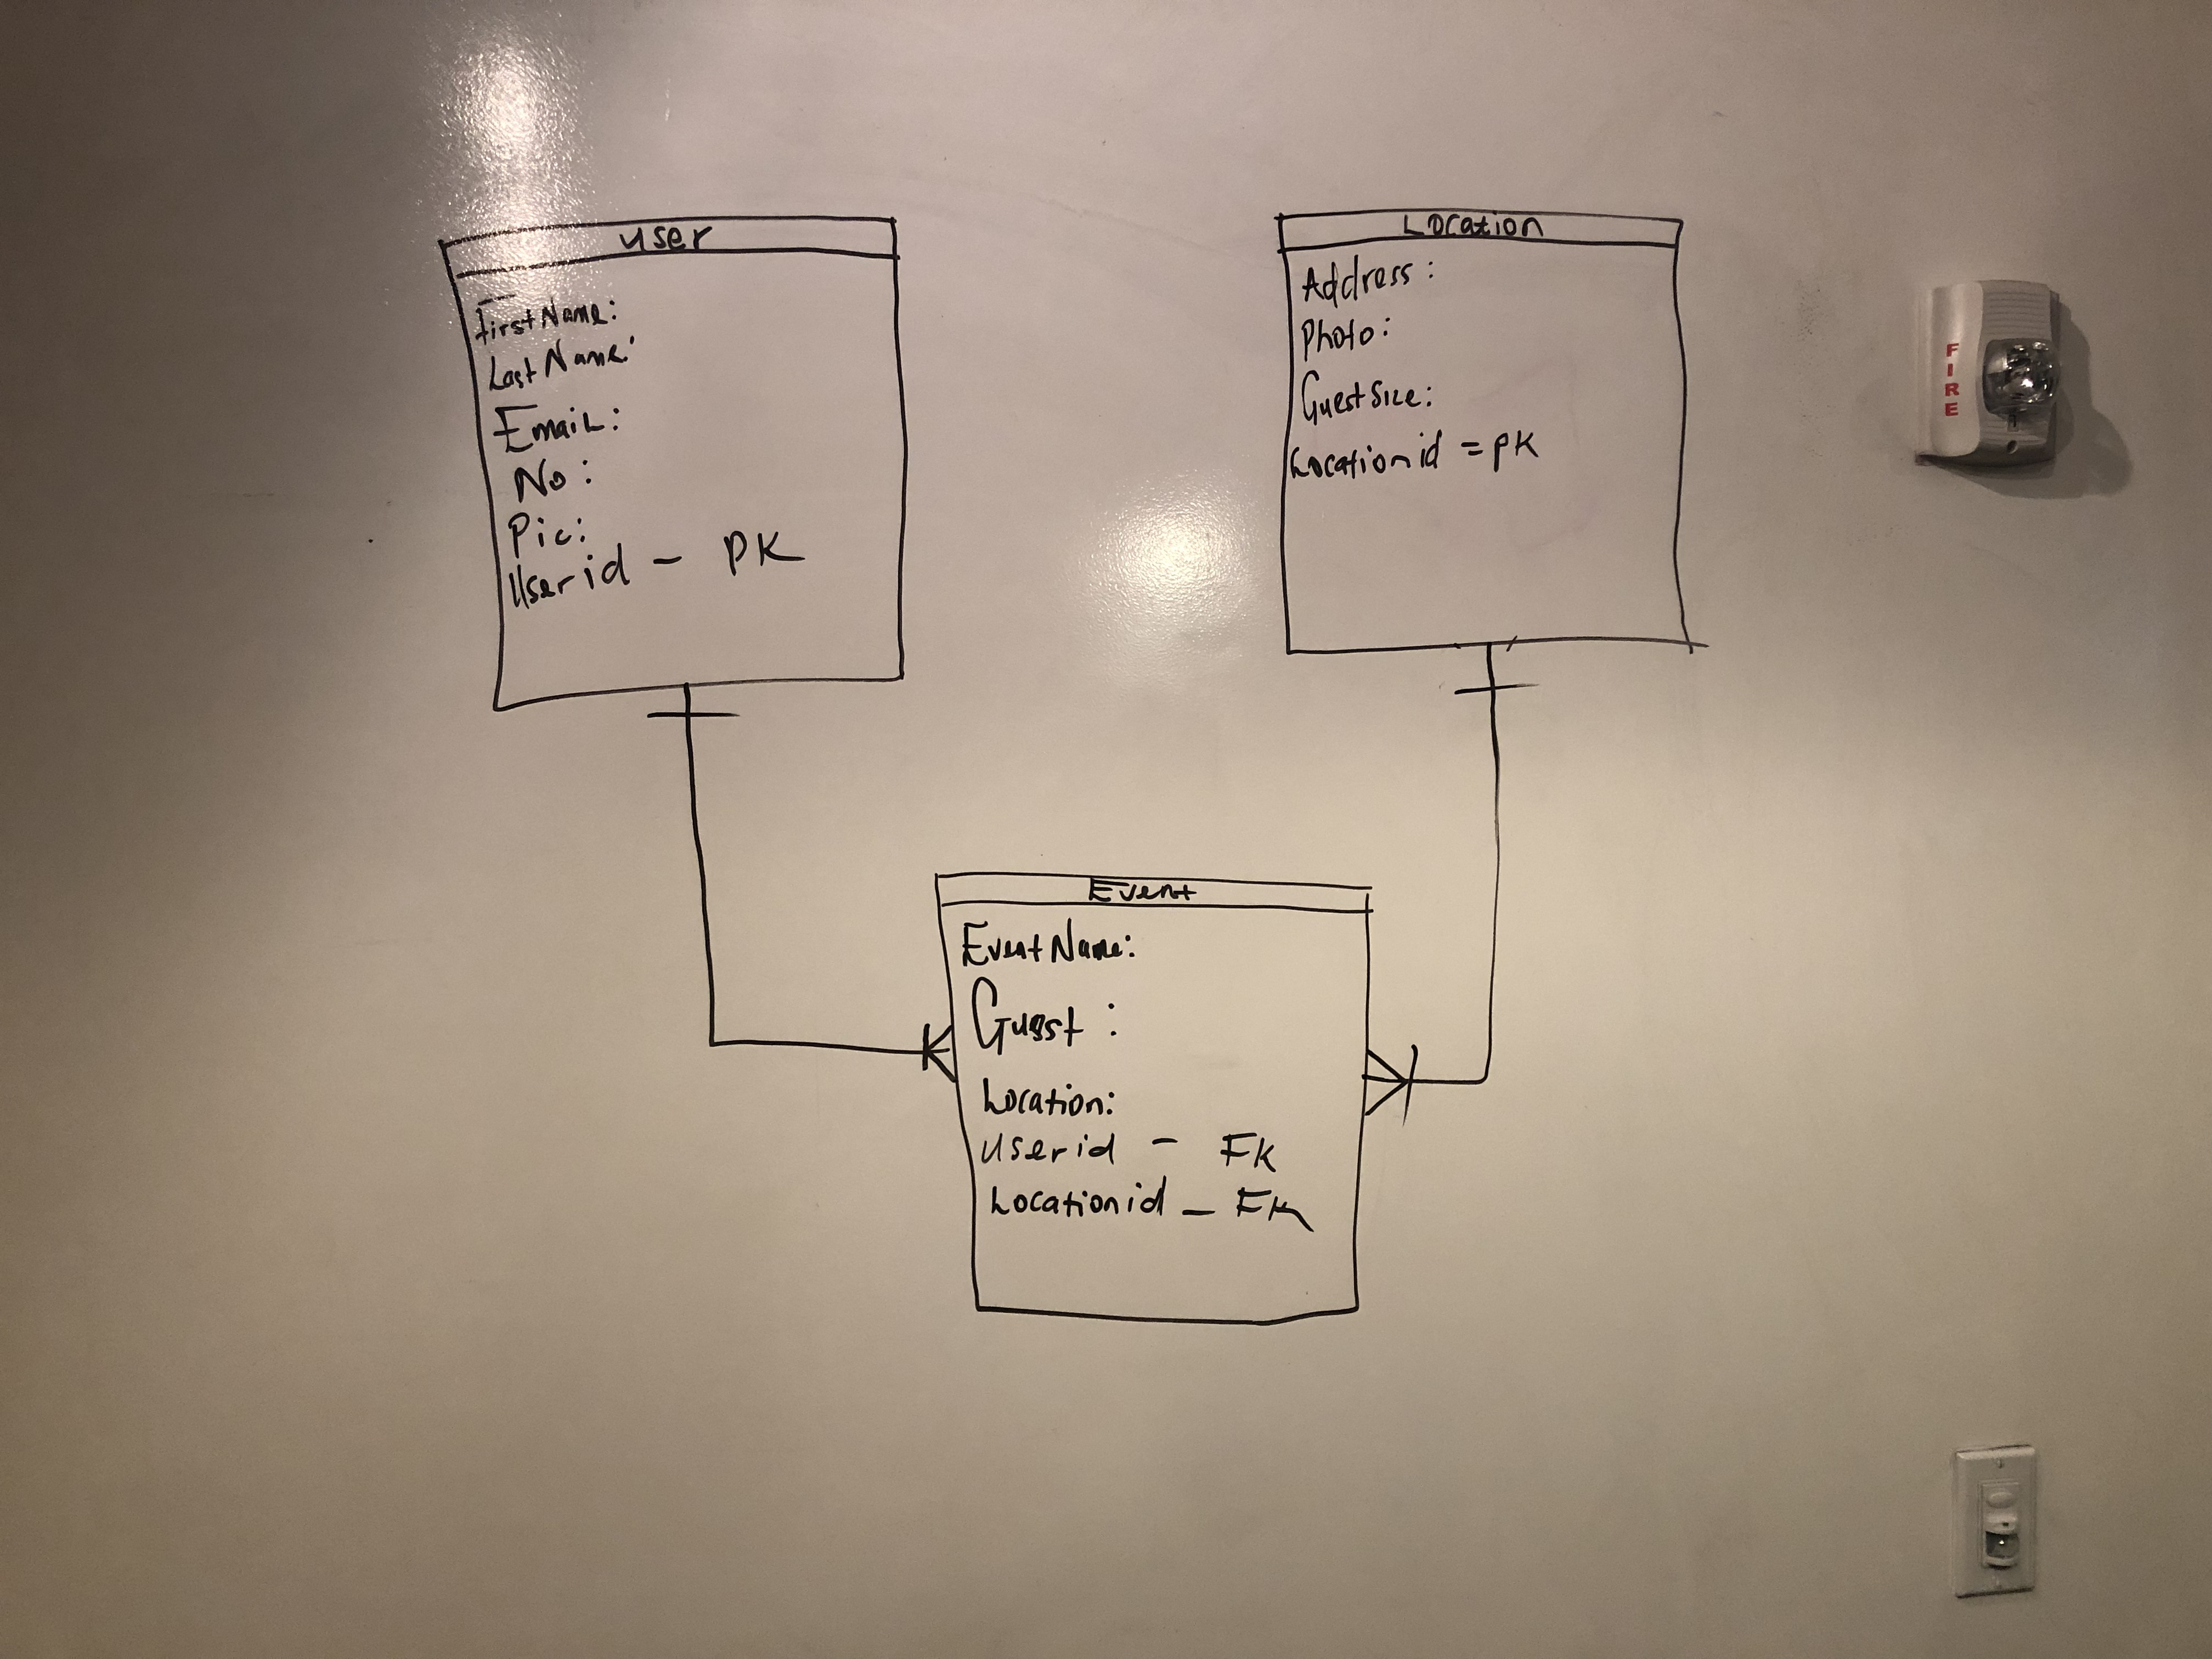 user
FirstName:
LastName:
Email:
No:
Pic:
Userid - PK
Location
Address:
Photo:
GuestSize:
Locationid = PK
FIRE
Event
EventName:
Guest:
Location:
userid - FK
Locationid - FK